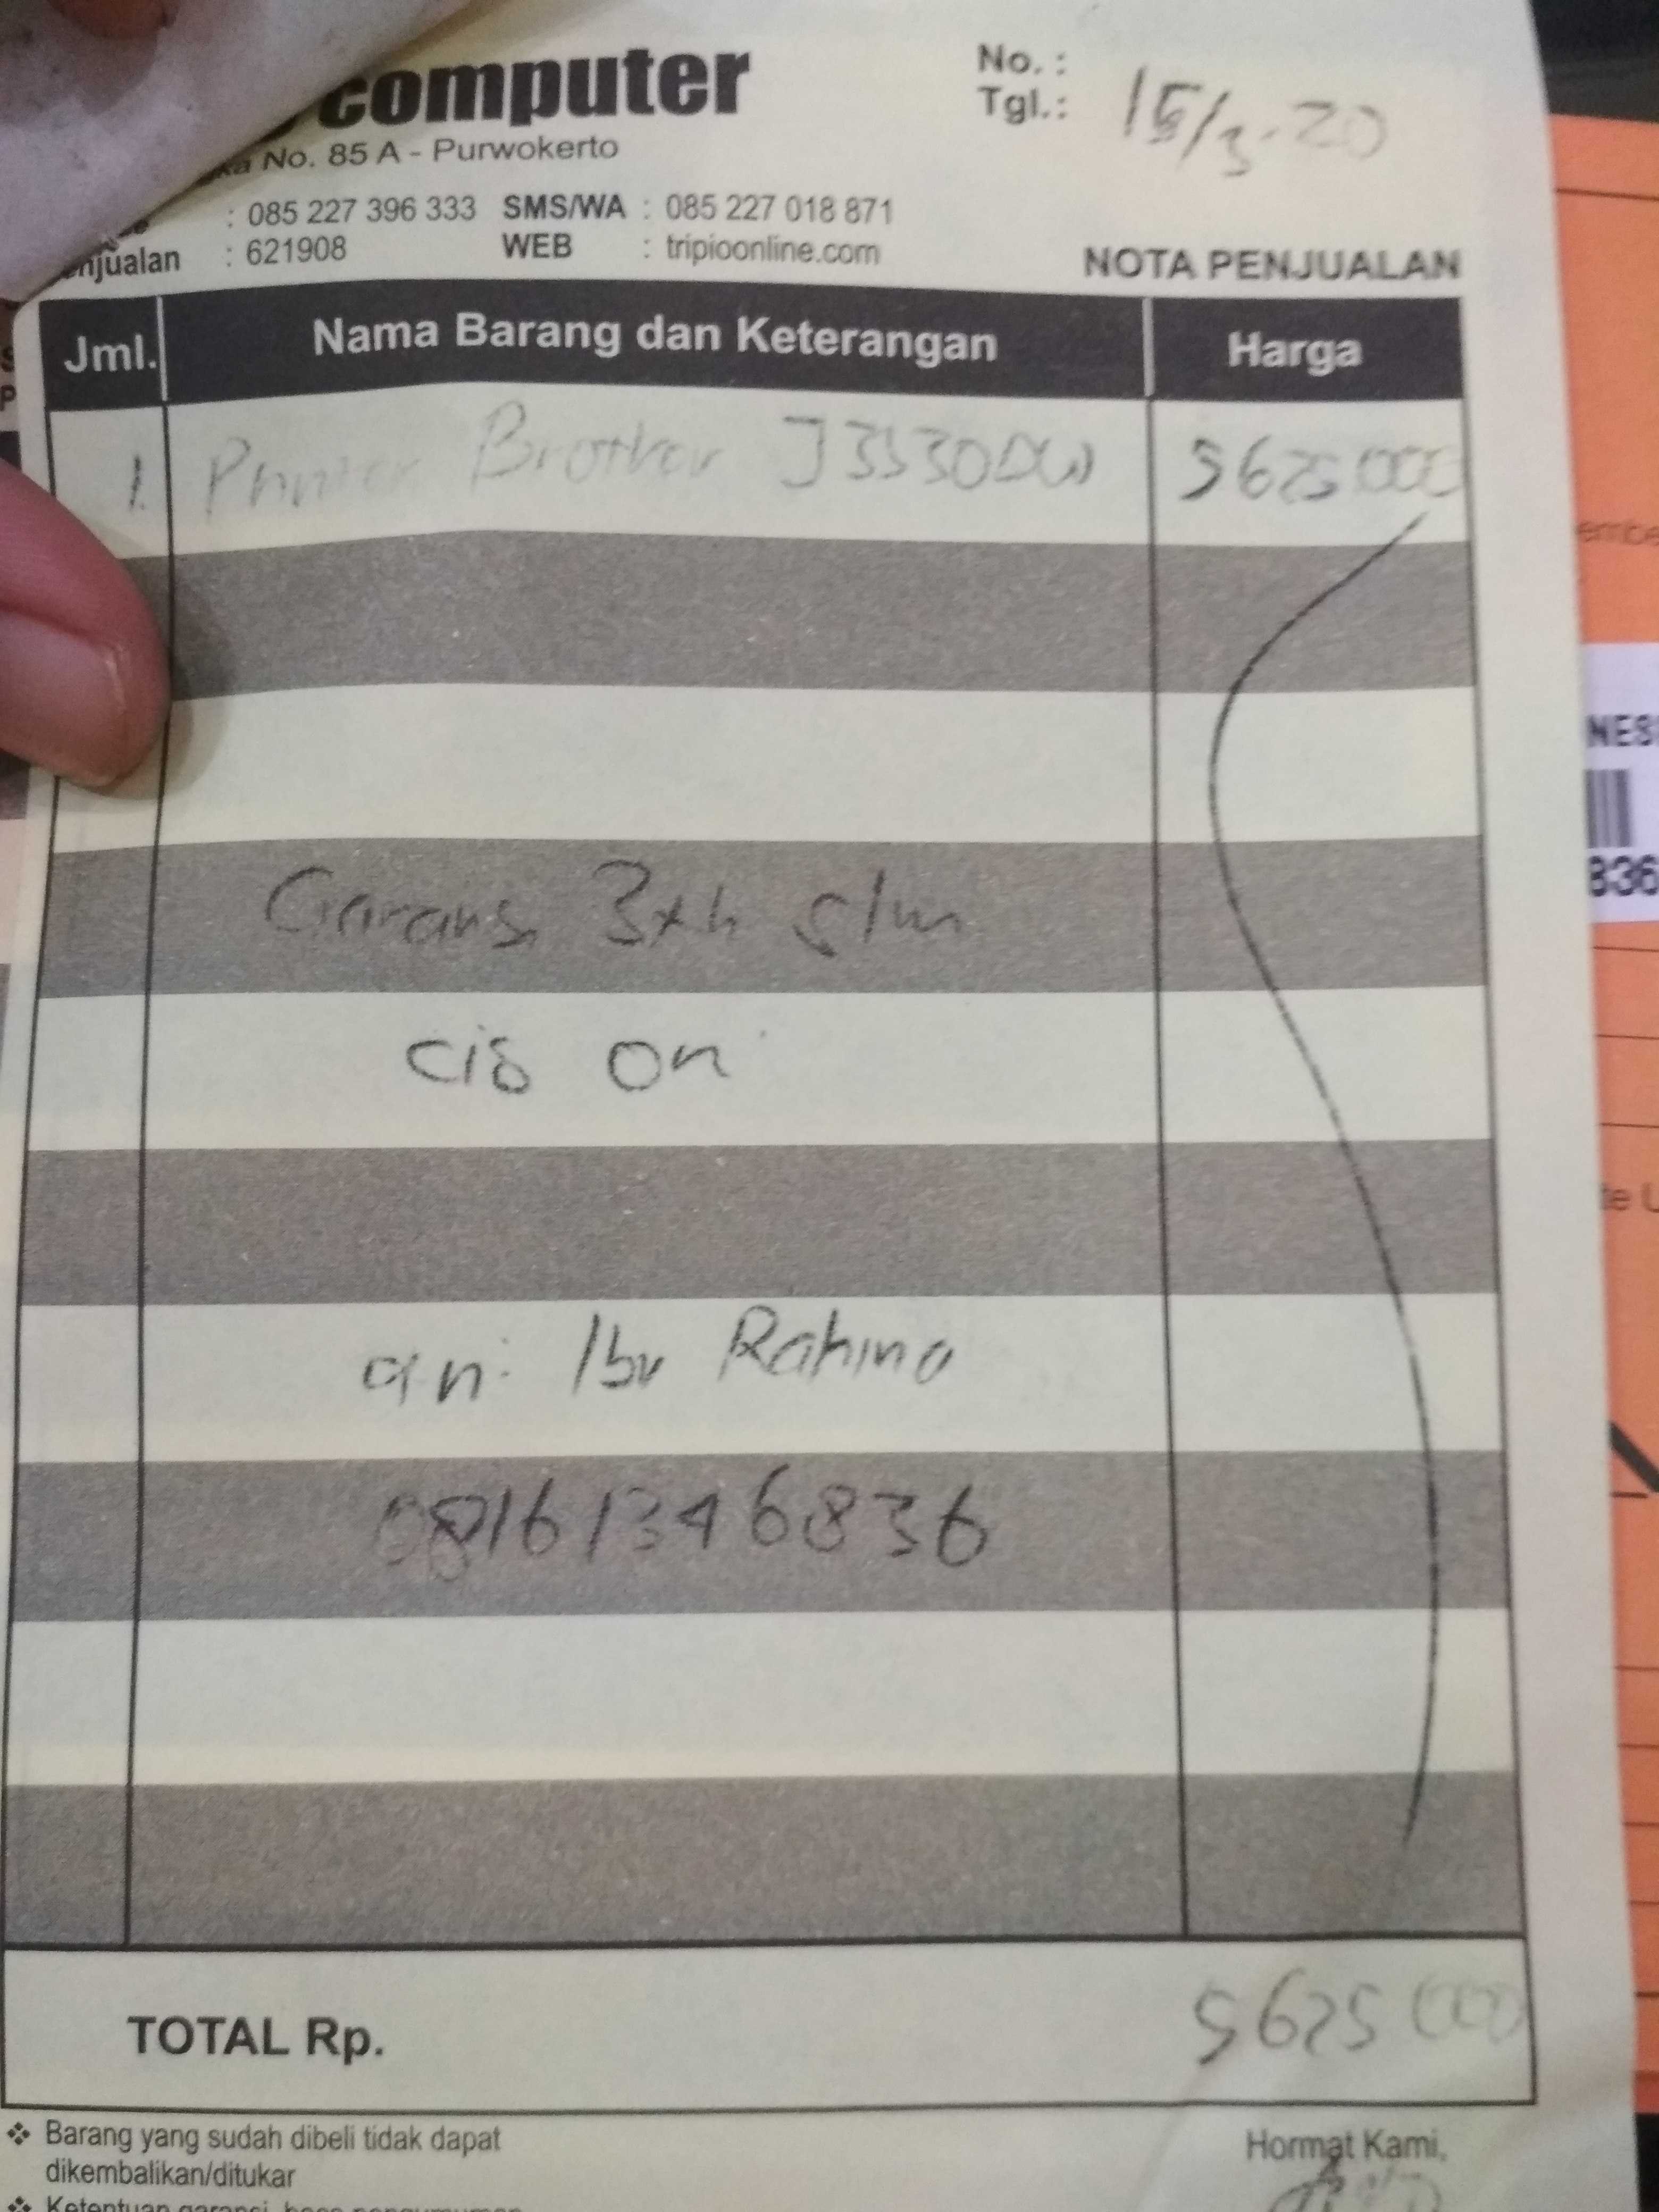 computer
No. 85 A - Purwokerto
: 085 227 396 333 SMS/WA : 085 227 018 871
: 621908 WEB : tripioonline.com
No. :
Tgl.: 15/3-20
NOTA PENJUALAN
Jml. Nama Barang dan Keterangan Harga
1. Printer Brother J3530DW 5625000
Garansi 3th
on
an: Ibu Rahma
08161346836
TOTAL Rp. 5625000
❖ Barang yang sudah dibeli tidak dapat
dikembalikan/ditukar
❖ Ketentuan garansi
Hormat Kami,
NES
836